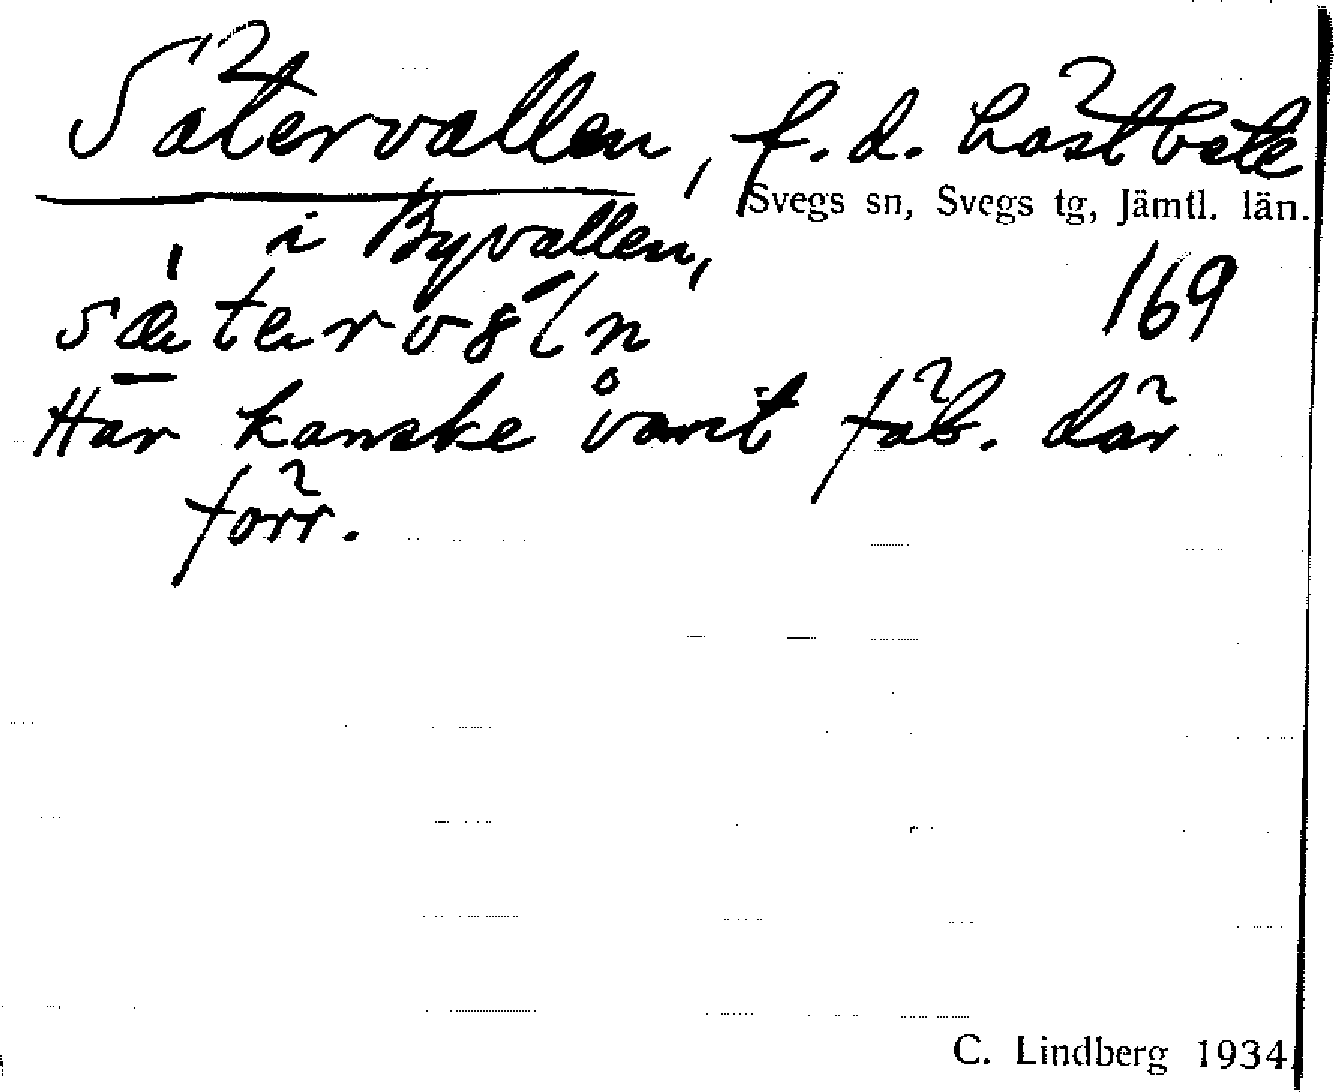 Sätervallen, f.d. hästbete
Svegs sn, Svegs tg, Jämtl. län.
i Byvallen,
169
Har kanske varit fäb. där
förr.
C. Lindberg 1934.